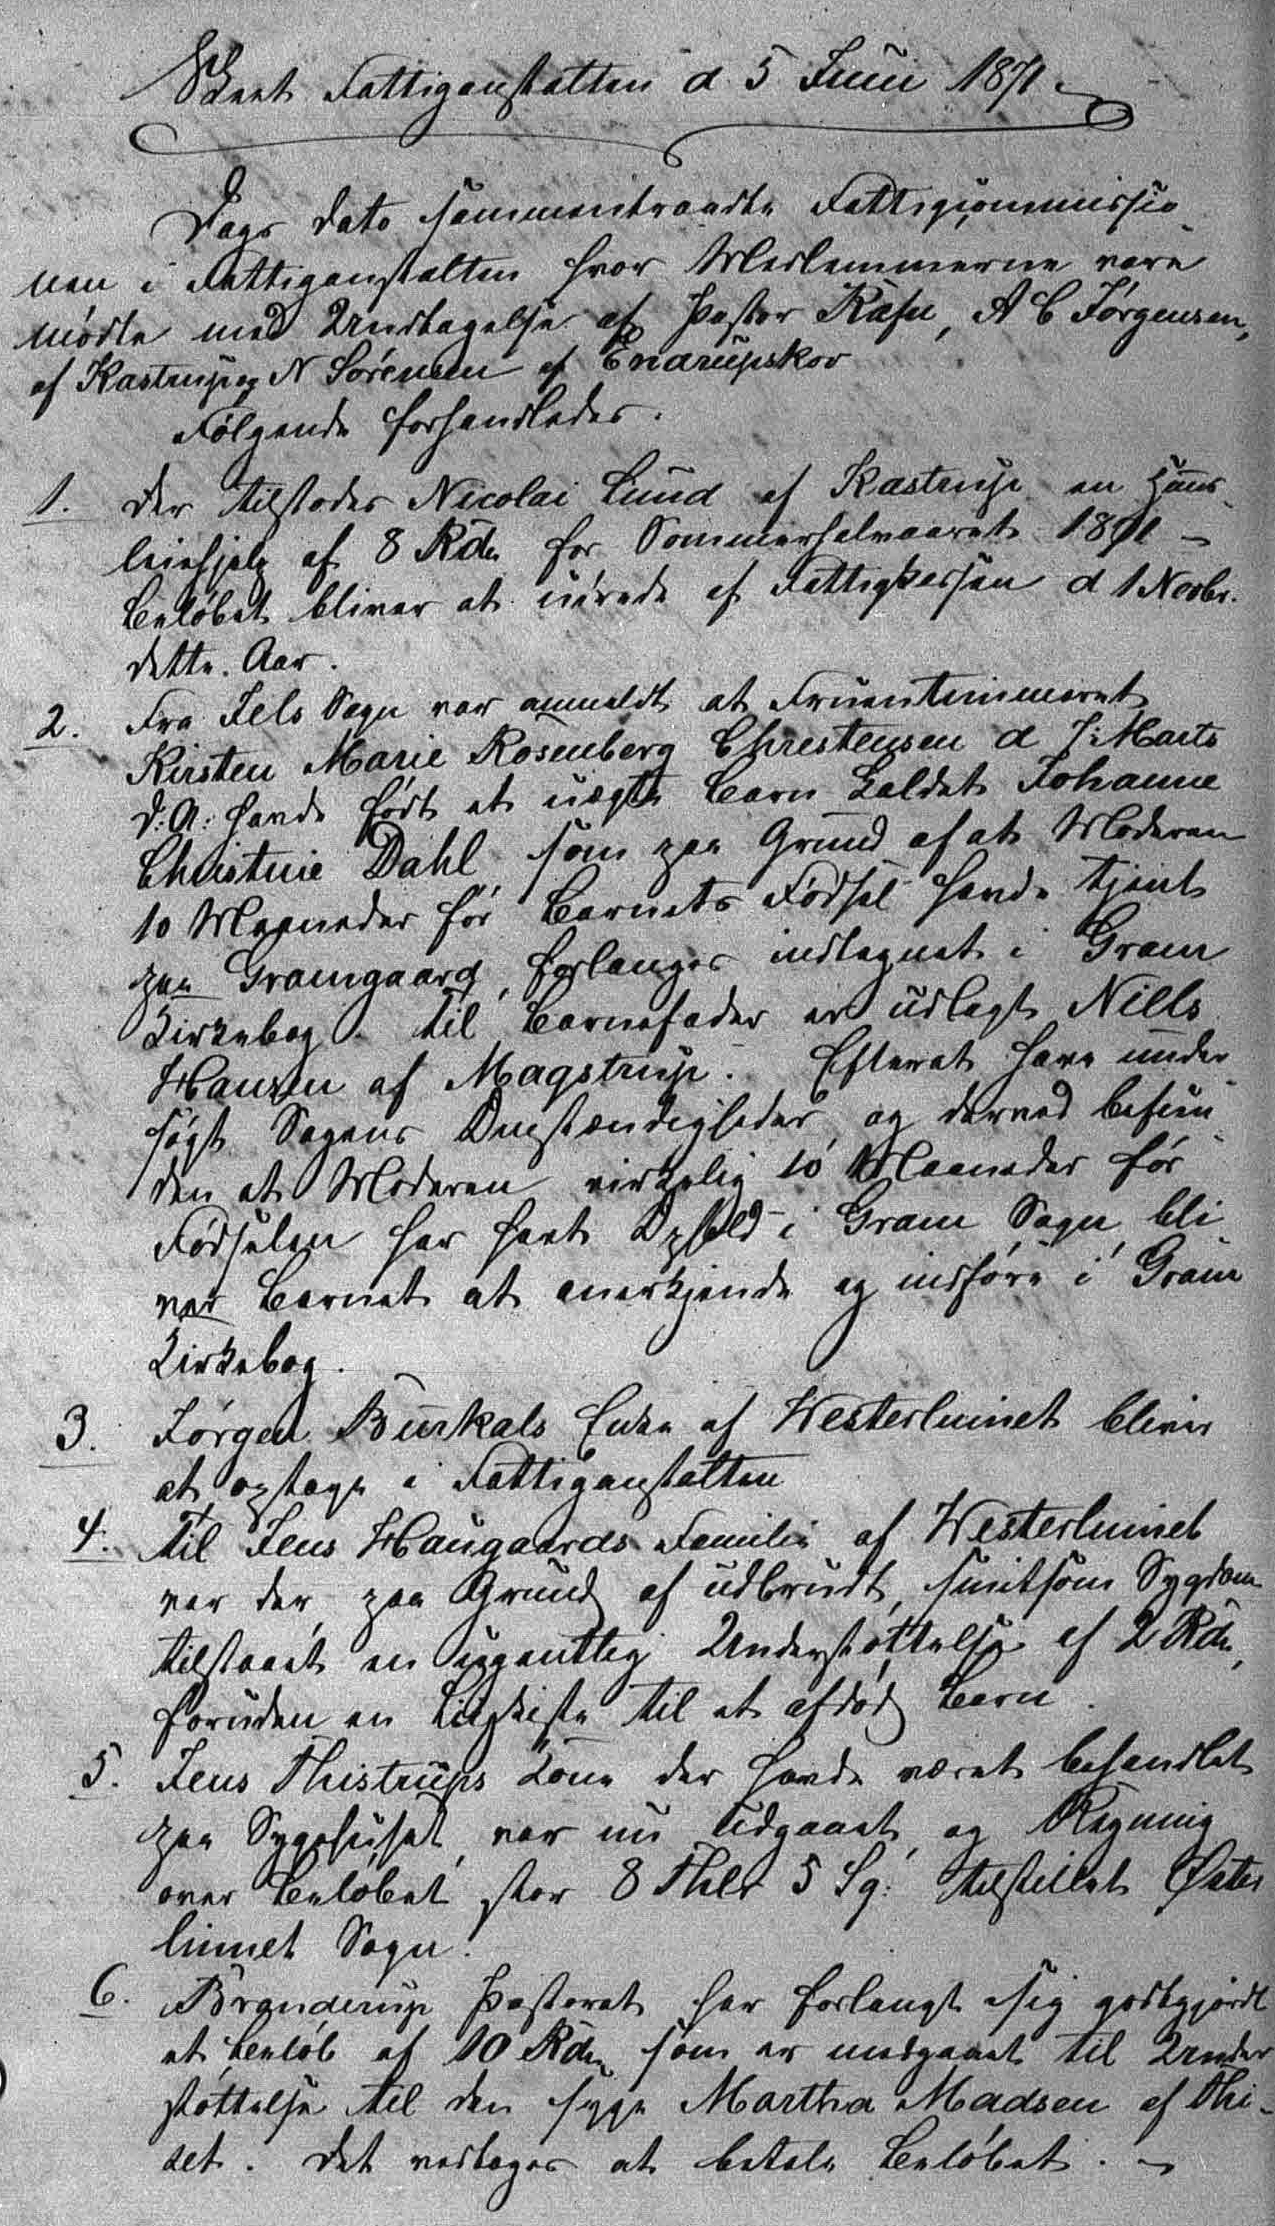 Skeet Fattiganstalten d 5 Juni 1871
Dags Dato sammentraadte Fattigcommissio
nen i Fattiganstalten hvor Medlemmerne vare
mødte med Undtagelse af Pastor Kafu, A C Jørgensen,
af Kastrup og N Sørensen af Endrupskov
Følgende forhandledes.
1. Der tilstodes Nicolai Lund af Kastrup en Huus
leiehjelp af 8 Rdr for Sommerhalvaaret 1871
Beløbet bliver at udrede af Fattigkassen d 1 Novbr.
dette Aar.
2. Fra Jels Sogn var anmeldt at Fruentimmeret
Kirsten Marie Rosenberg Chrestensen d 7: Marts
d: A: havde født et uægte Barn kaldet Johanne
Christine Dahl som paa Grund af at Moderen
10 Maaneder før Barnets Fødsel havde tjent
paa Gramgaard, forlanges indtegnet i Gram
Kirkebog. Til Barnefader er udlagt Niels
Hansen af Magstrup. Efterat have under
søgt Sagens Omstændigheder, og derved befun
den at Moderen virkelig 10 Maaneder før
Fødselen har havt Ophold i Gram Sogn, bli
ver Barnet at anerkjende og indføre i Gram
Kirkebog.
3. Jørgen Burkals Enke af Westerlinnet bliver
at optage i Fattiganstalten
4. Til Jens Haugaards Familie af Westerlinnet
var der, paa Grund af udbrudt, smitsom Sygdom
tilstaaet en ugentlig Understøttelse af 2 Rdr,
foruden en Ligkiste til et afdød Barn.
5. Jens Thistrups Kone der havde været behandlet
paa Sygehuset, var nu udgaaet, og Regning
over Beløbet stor 8 Thlr 5 Sg: tilstillet Øster
linnet Sogn.
6. Branderup Pastorat har forlangt sig godtgjordt
et Beløb af 10 Rdr som er medgaaet til Under
støttelse til den syge Martha Madsen af Thi-
set. Det vedtoges at betale Beløbet.